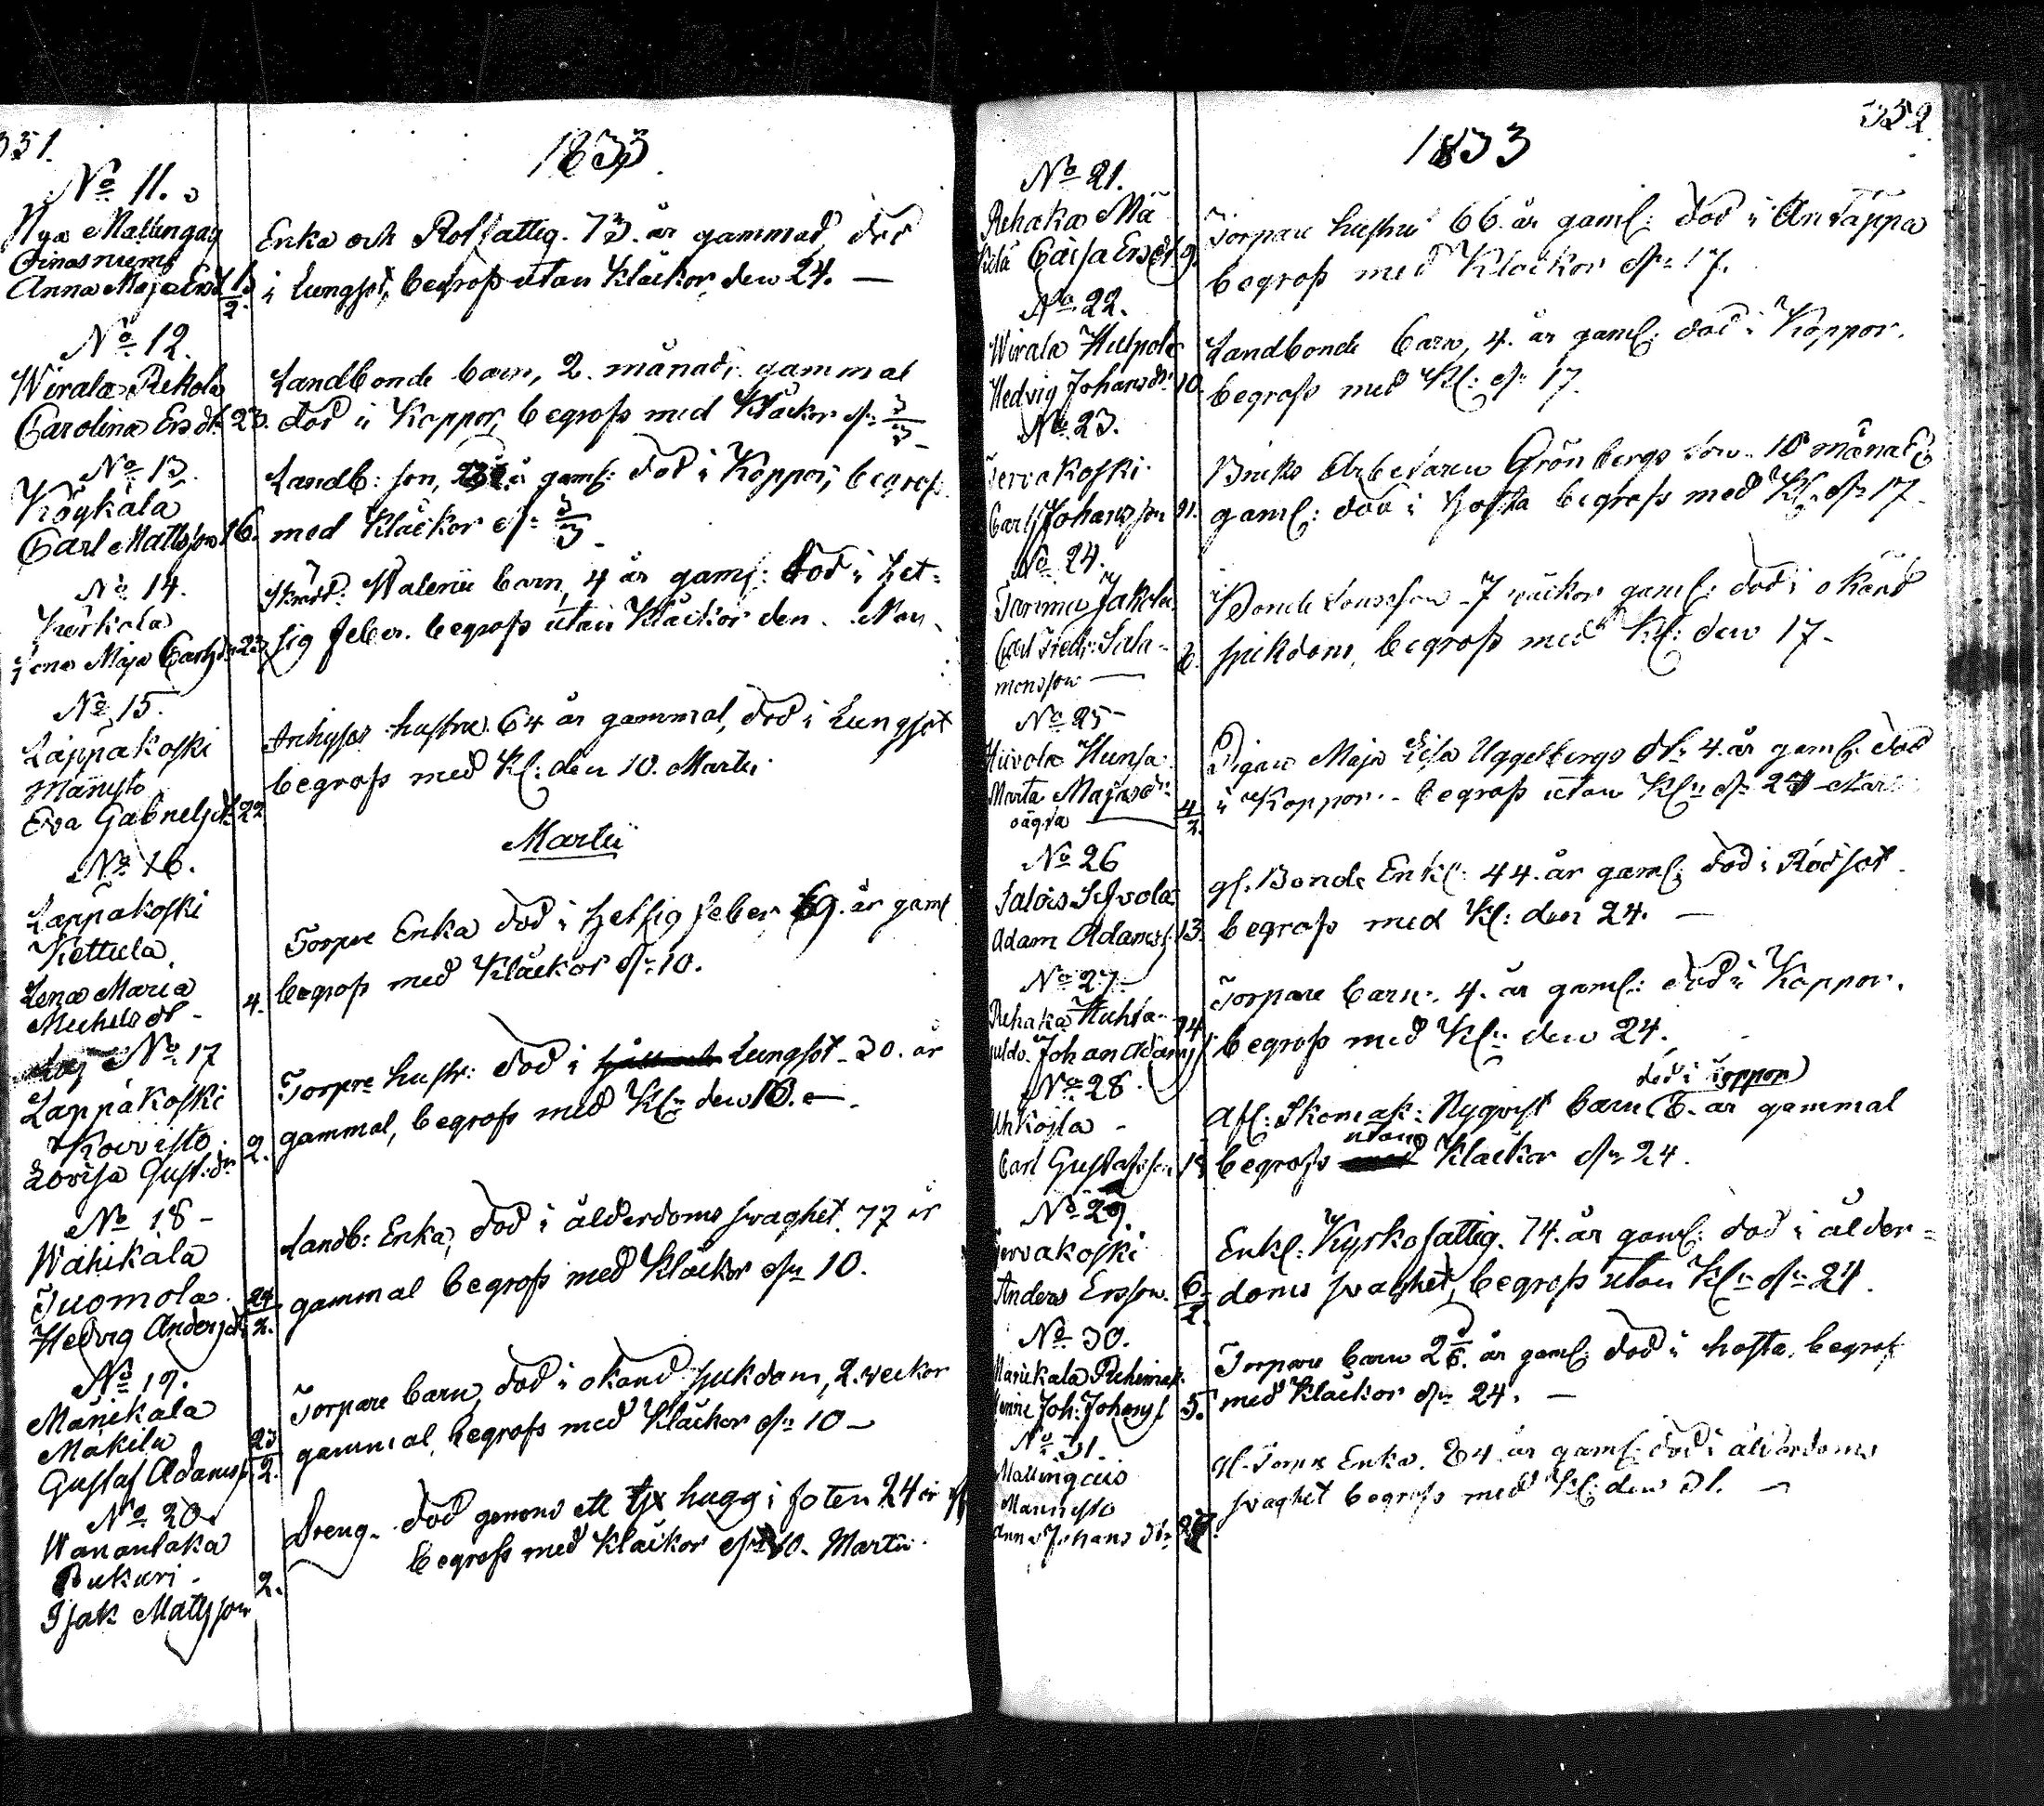 351.
1833.
No 11.
Nya Mallungag
Anna Maja Ersd 13/2.
Enka och Rotfattig. 73. år gammal, död
i Lungsot, begrofs utan Kläckor, den 24. —
No 12.
Wirala Rekola
Carolina Ersdr 23.
Landbonde barn, 2. månad: gammal
död i Koppor, begrofs med Kläckor dn 3/3 -
No 13.
Köykälä
Carl Mattsson 16.
Landb: son, gaml: död i Koppor, begrofs
med Kläckor dn 3/3 -
No 14.
Kerkola
Lena Maja Carlsdr 23
Skräd: Walenii barn, 4 år gaml: död i Het=
sig feber. begrofs utan Kläckor den
No 15.
Lappakoski
Mänisto
Eva Gabrielsdr 22
hustru 64 år gammal, död i Lungsot
begrofs med Kl: den 10. Martii.
Martii
No 16.
Lappakoski
Kettula.
Lena Maria
Michelsdr - 4.
Torpare Enka död i Hetsig feber, 69. år gaml
begrofs med Kläckor dn 10.
No 17
Lappakoski
Koivisto.
Lovisa Gust:dr 2.
Torpre hustr: död i Lungsot - 30. år
gammal, begrofs med Kl: den 10. —
No 18 -
Wähikälä
Tuomola.
Hedvig Andersdr 24/2.
Landb: Enka, död i ålderdoms svaghet. 77 år
gammal begrofs med Kläckor dn 10.
No 19.
Mänikälä
Mäkilä
Gustaf Adamss 23/2.
Torpare barn, död i okänd sjukdom, 2. veckor
gammal, begrofs med Kläckor dn 10 -
No 20.
Wanantaka
Pukari.
Isak Mattsson 2.
Dreng. död genom ett yx hugg i foten 24 år
begrofs med Kläckor dn 10. Martii.
352.
1833
No 21.
Rehaka Mä
kilä Caisa Ersdr 9.
Torpare hustru 66. år gaml: död i Andtäppa
begrofs med Kläckor dn 17.
No 22.
Wirala Hulpola
Hedvig Johansdr 10.
Landbonde barn, 4. år gaml: död i Koppor.
begrofs med Kl: dn 17.
No 23.
Tervakoski.
Carl Johansson 11.
Bruks Arbetaren Grönbergs son. 18 månad
gaml: död i Hosta begrofs med Kl: dn 17 -
No 24.
Tarinma Jakola
Carl Fredr: Salo-
monsson — 6.
Bonde Sonsson - 7 veckor gaml: död i okänd
sjukdom, begrofs med Kl: den 17 -
No 25 -
Hiivola Hunsa
Marta Majasdr
oägta — 4/2.
Pigan Maja Lisa Uggelbergs dr 4. år gaml: död
i Koppor. - begrofs utan Kl: dn 24
No 26
Salois Sifvola
Adam Adamss. 13.
gl. Bonde Enkl: 44. år gaml: död i Rödsot.
begrofs med Kl: den 24. —
No 27 -
Rehaka Huhta-
Johan Adamss 14
Torpare barn. 4. år gaml: död i Koppor.
begrofs med Kl: den 24.
No 28.
Uhkoila -
Carl Gustafsson 18
död i Koppor
Afl: Skomak: Nyqvist barn 6. år gammal
utan
begrofs Kläckor dn 24.
No 29.
Tervakoski
Anders Ersson. 6/2.
Enkl: Kyrkofattig. 74. år gaml: död i ålder=
doms svaghet, begrofs utan Kl: dn 24.
No 30.
Mänikälä
Joh: Johanss 5.
Torpare barn 2 år gaml: död i hosta, begrof
med Kläckor dn 24. —
No 31.
Mallingais
Männisto
Anna Johans dr
gl. Torpr Enka. 84. år gaml: död i ålderdoms
svaghet begrofs med Kl: den 31. —